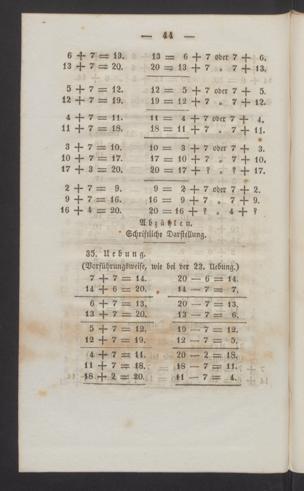 — 44 —
6 + 7 = 13. 13 = 6 + 7 oder 7 + 6.
13 + 7 = 20. 20 = 13 + 7 „ 7 + 13.
5 + 7 = 12. 12 = 5 + 7 oder 7 + 5.
12 + 7 = 19. 19 = 12 + 7 „ 7 + 12.
4 + 7 = 11. 11 = 4 + 7 oder 7 + 4.
11 + 7 = 18. 18 = 11 + 7 „ 7 + 11.
3 + 7 = 10. 10 = 3 + 7 oder 7 + 3.
10 + 7 = 17. 17 = 10 + 7 „ 7 + 10.
17 + 3 = 20. 20 = 17 + ? „ ? + 17.
2 + 7 = 9. 9 = 2 + 7 oder 7 + 2.
9 + 7 = 16. 16 = 9 + 7 „ 7 + 9.
16 + 4 = 20. 20 = 16 + ? „ 4 + ?
Abzählen.
Schriftliche Darstellung.
35. Uebung.
(Vorführungsweise, wie bei der 22. Uebung.)
7 + 7 = 14. 20 — 6 = 14.
14 + 6 = 20. 14 — 7 = 7.
6 + 7 = 13. 20 — 7 = 13.
13 + 7 = 20. 13 — 7 = 6.
5 + 7 = 12. 19 — 7 = 12.
12 + 7 = 19. 12 — 7 = 5.
4 + 7 = 11. 20 — 2 = 18.
11 + 7 = 18. 18 — 7 = 11.
18 + 2 = 20. 11 — 7 = 4.